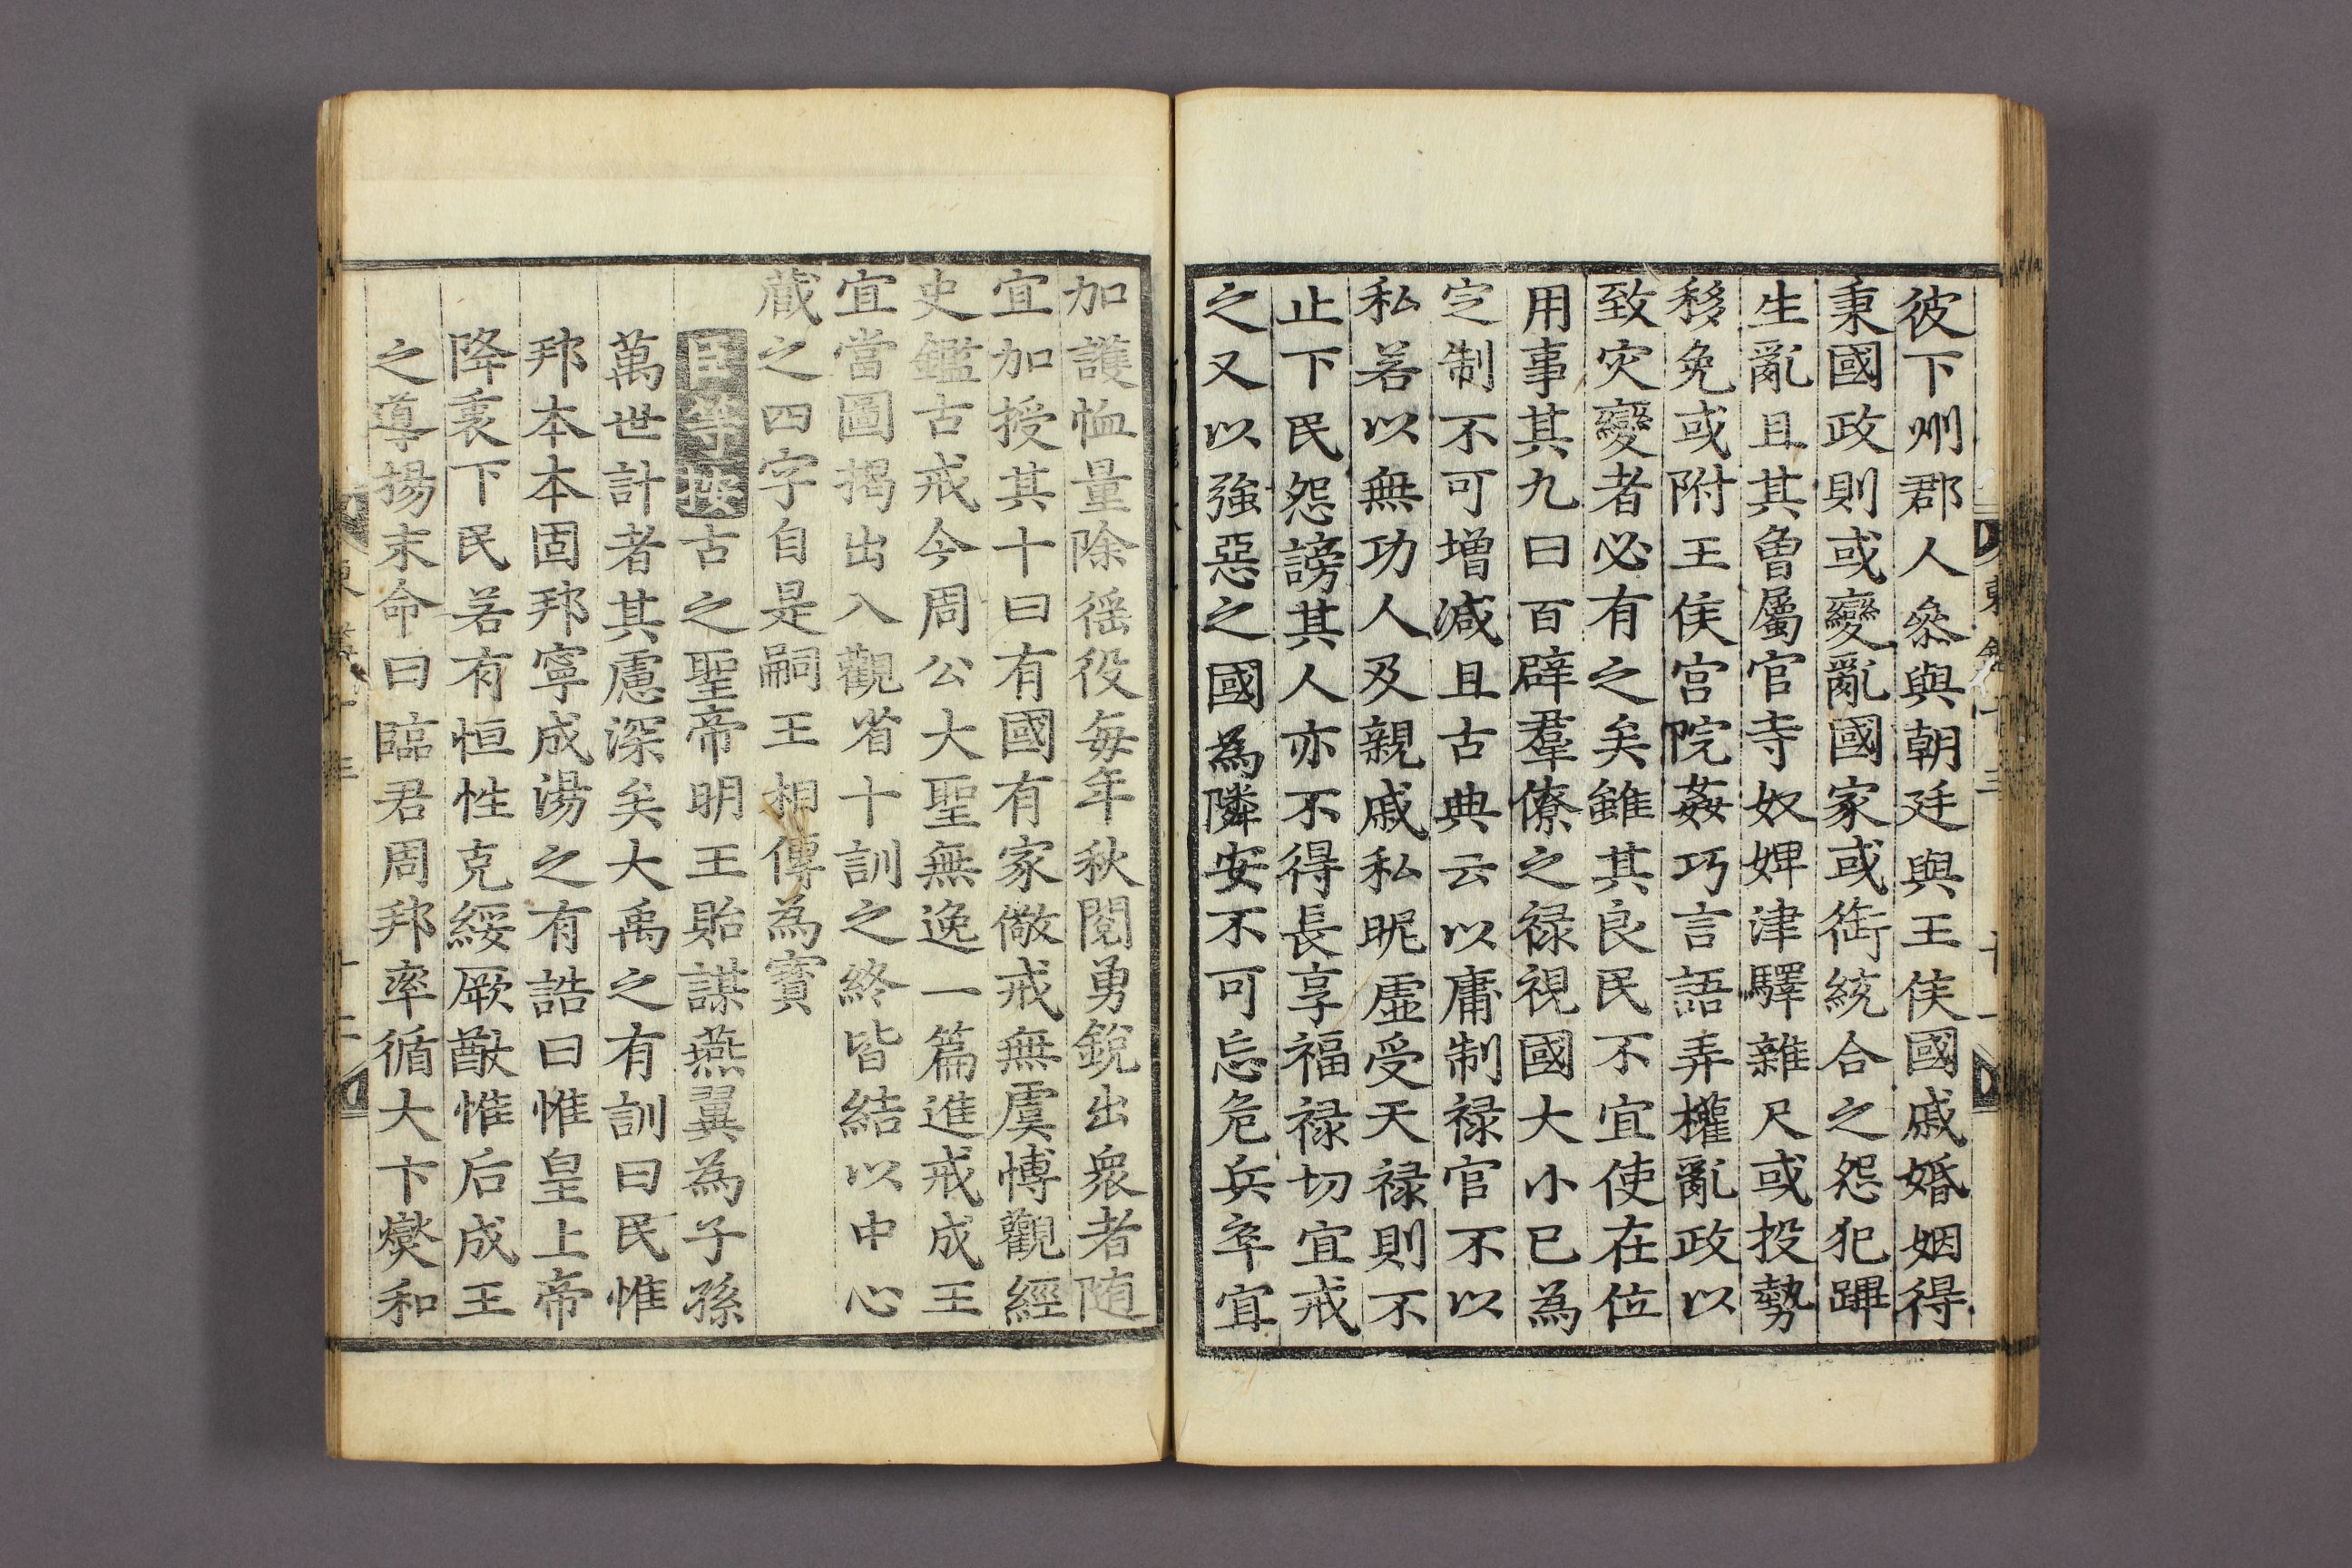 彼下州郡人叅與朝廷與王侯國戚婚姻得
秉國政則或變亂國家或銜統合之怨犯蹕
生亂且其曾屬官寺奴婢津驛雜尺或投勢
移免或附王侯宮院姦巧言語弄權亂政以
致灾變者必有之矣雖其良民不宜使在位
用事其九曰百辟羣僚之祿視國大小已為
定制不可增减且古典云以庸制祿官不以
私若以無功人及親戚私昵虛受天祿則不
止下民怨謗其人亦不得長享福祿切宜戒
之又以強惡之國為隣安不可忘危兵卒宜
加護恤量除徭役每年秋閱勇銳出衆者随
宜加授其十曰有國有家儆戒無虞愽觀經
史鑑古戒今周公大聖無逸一篇進戒成王
宜當圖揭出入觀省十訓之終皆結以中心
藏之四字自是嗣王相傳為寳
臣等按古之聖帝明王貽謀燕翼為子孫
萬世計者其慮深矣大禹之有訓曰民惟
邦本本固邦寧成湯之有誥曰惟皇上帝
降衷下民若有恒性克綏厥猷惟后成王
之導揚末命曰臨君周邦率循大卞爕和